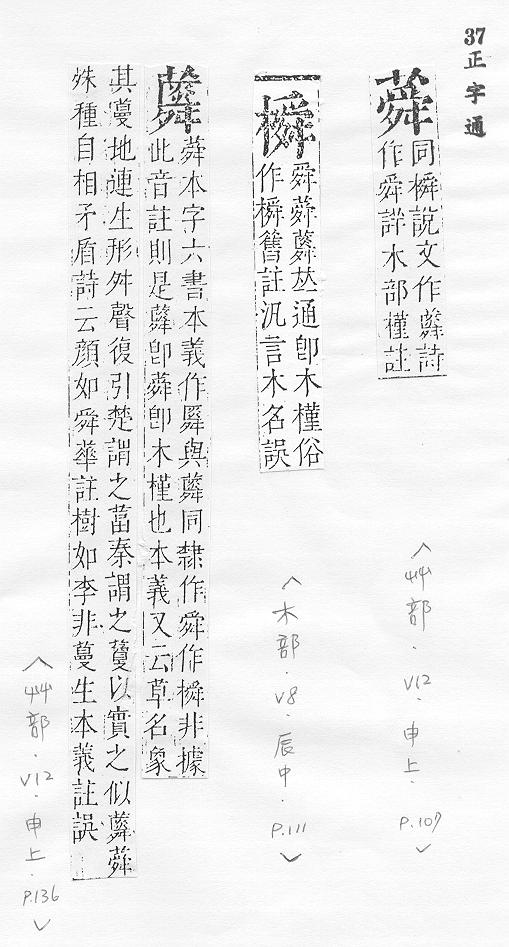 37
正字通
蕣
同橓說文作䑞詩
作舜詳木部槿註
橓
舜蕣䑞𠀤通卽木槿俗
作橓舊註汎言木名誤
䑞
蕣本字六書本義作䑞與䑞同隸作舜作橓非據
此音註則是䑞卽蕣卽木槿也本義又云草名象
其蔓地連生形舛聲復引楚謂之葍秦謂之藑以實之似䑞蕣
殊種自相矛盾詩云顏如舜華註樹如李非蔓生本義註誤
︿艸部·V12·申上·P.107﹀
︿木部·V8·辰中·P.111﹀
︿艸部·V12·申上·P.136﹀